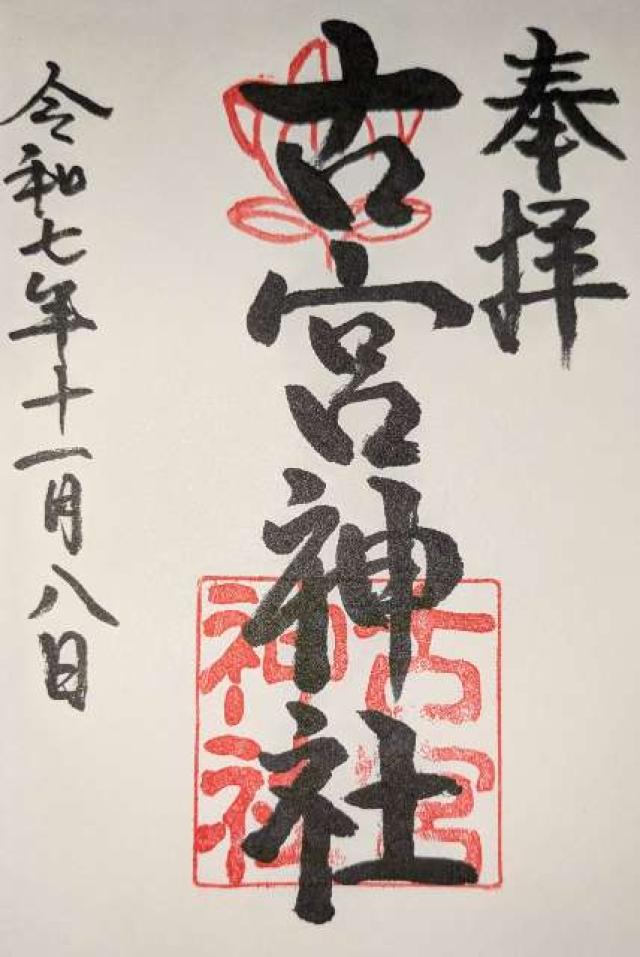 奉拝
古宮神社
古宮
神社
令和七年十一月八日